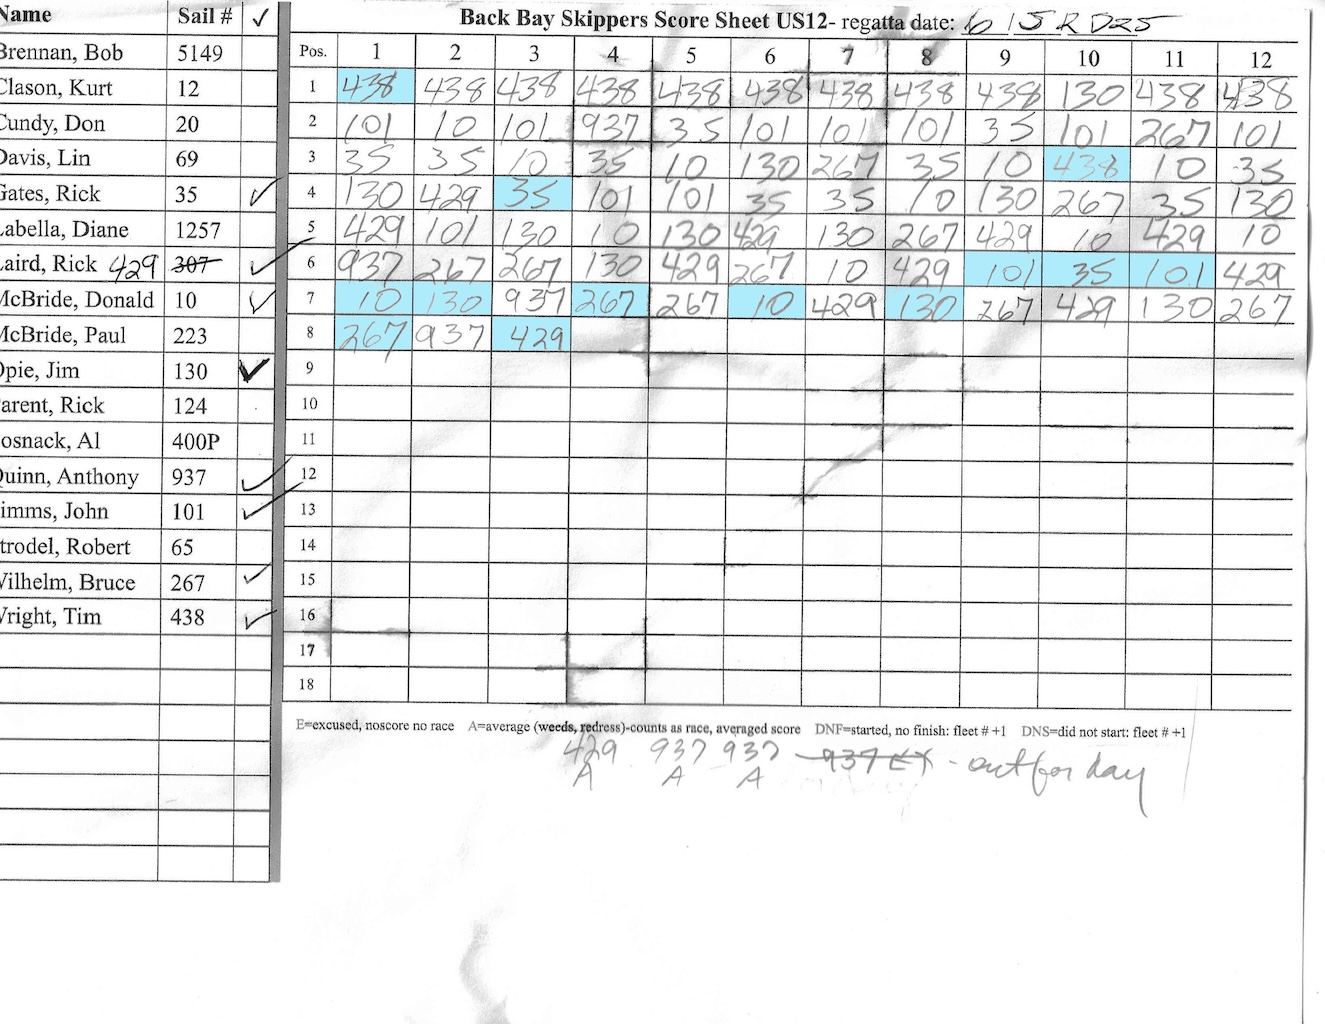 Name Sail # ✓
Back Bay Skippers Score Sheet US12- regatta date: 6 15 R D25
Brennan, Bob 5149
Pos. 1 2 3 4 5 6 7 8 9 10 11 12
Clason, Kurt 12
1 438 438 438 438 438 438 438 438 438 130 438 438
Cundy, Don 20
2 101 10 101 937 35 101 101 101 35 101 267 101
Davis, Lin 69
3 35 35 10 35 10 130 267 35 10 438 10 35
Gates, Rick 35 ✓
4 130 429 35 101 101 35 35 10 130 267 35 130
Labella, Diane 1257
5 429 101 130 10 130 429 130 267 429 10 429 10
Laird, Rick 429 307 ✓
6 937 267 267 130 429 267 10 429 101 35 101 429
McBride, Donald 10 ✓
7 10 130 937 267 267 10 429 130 267 429 130 267
McBride, Paul 223
8 267 937 429
Opie, Jim 130 ✓
9
Parent, Rick 124
10
osnack, Al 400P
11
Quinn, Anthony 937 ✓
12
imms, John 101 ✓
13
trodel, Robert 65
14
Wilhelm, Bruce 267 ✓
15
Wright, Tim 438 ✓
16
17
18
E=excused, noscore no race A=average (weeds, redress)-counts as race, averaged score DNF=started, no finish: fleet # +1 DNS=did not start: fleet # +1
429 937 937 937 EX - out for day
A A A